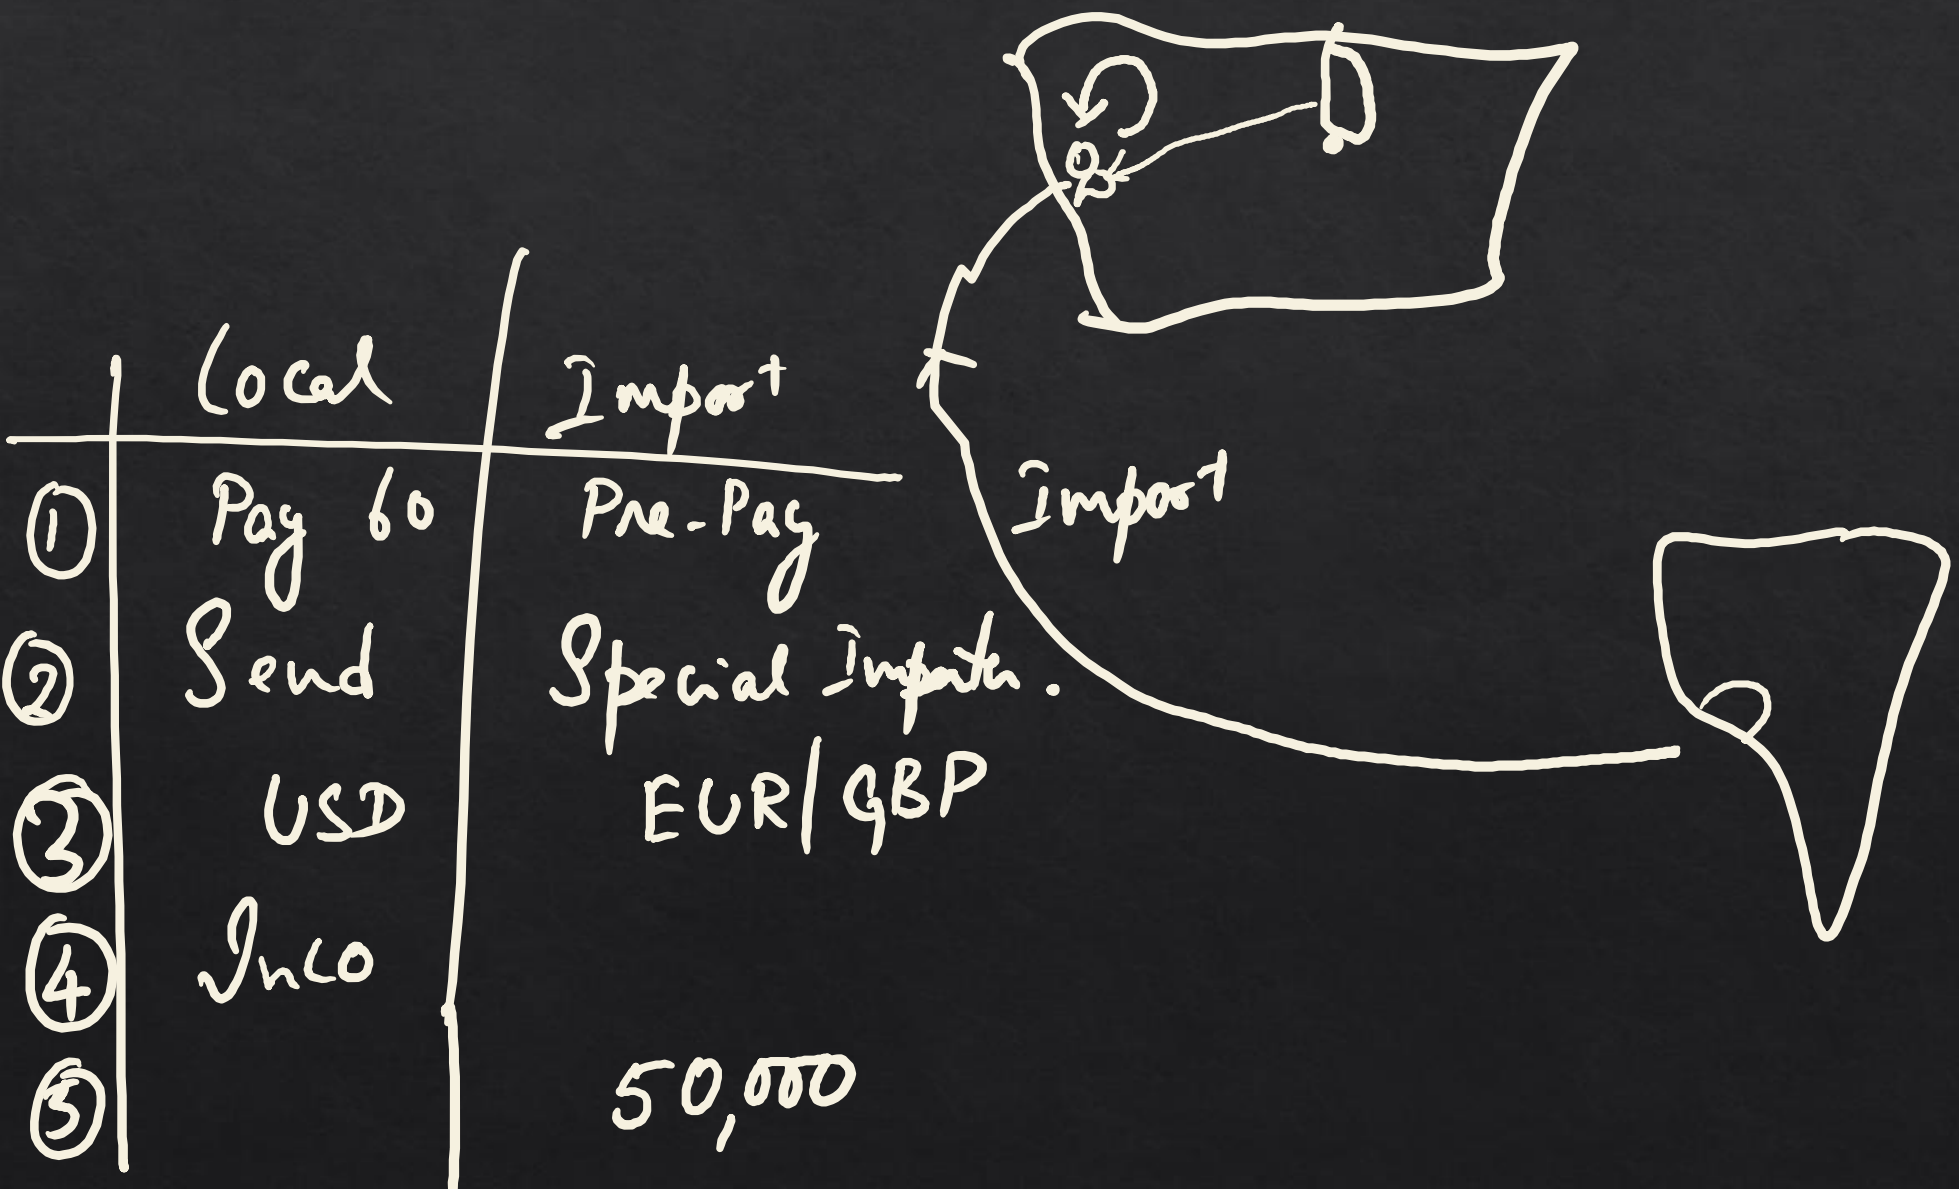 Local Import
① Pay 60 Pre-Pay
② Send Special Importer.
③ USD EUR/GBP
④ Inco
⑤ 50,000
Import